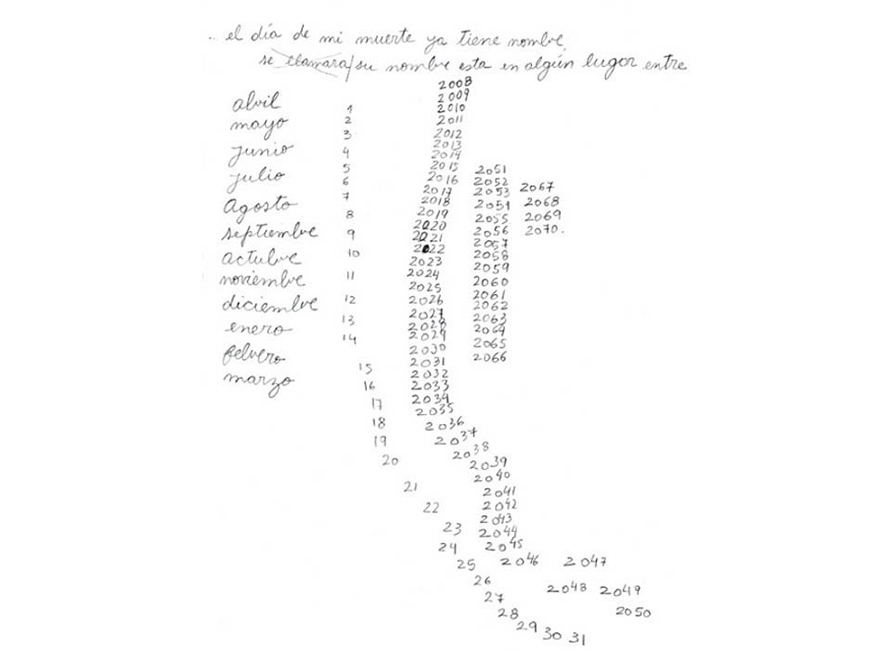 .. el día de mi muerte ya tiene nombre
se llamara/su nombre esta en algún lugar entre
abril
mayo
junio
julio
agosto
septiembre
octubre
noviembre
diciembre
enero
febrero
marzo
1
2
3
4
5
6
7
8
9
10
11
12
13
14
15
16
17
18
19
20
21
22
23
24
25
26
27
28
29 30 31
2008
2009
2010
2011
2012
2013
2014
2015
2016
2017
2018
2019
2020
2021
2022
2023
2024
2025
2026
2027
2028
2029
2030
2031
2032
2033
2034
2035
2036
2037
2038
2039
2040
2041
2042
2043
2044
2045
2046 2047
2048 2049
2050
2051
2052
2053
2054
2055
2056
2057
2058
2059
2060
2061
2062
2063
2064
2065
2066
2067
2068
2069
2070.